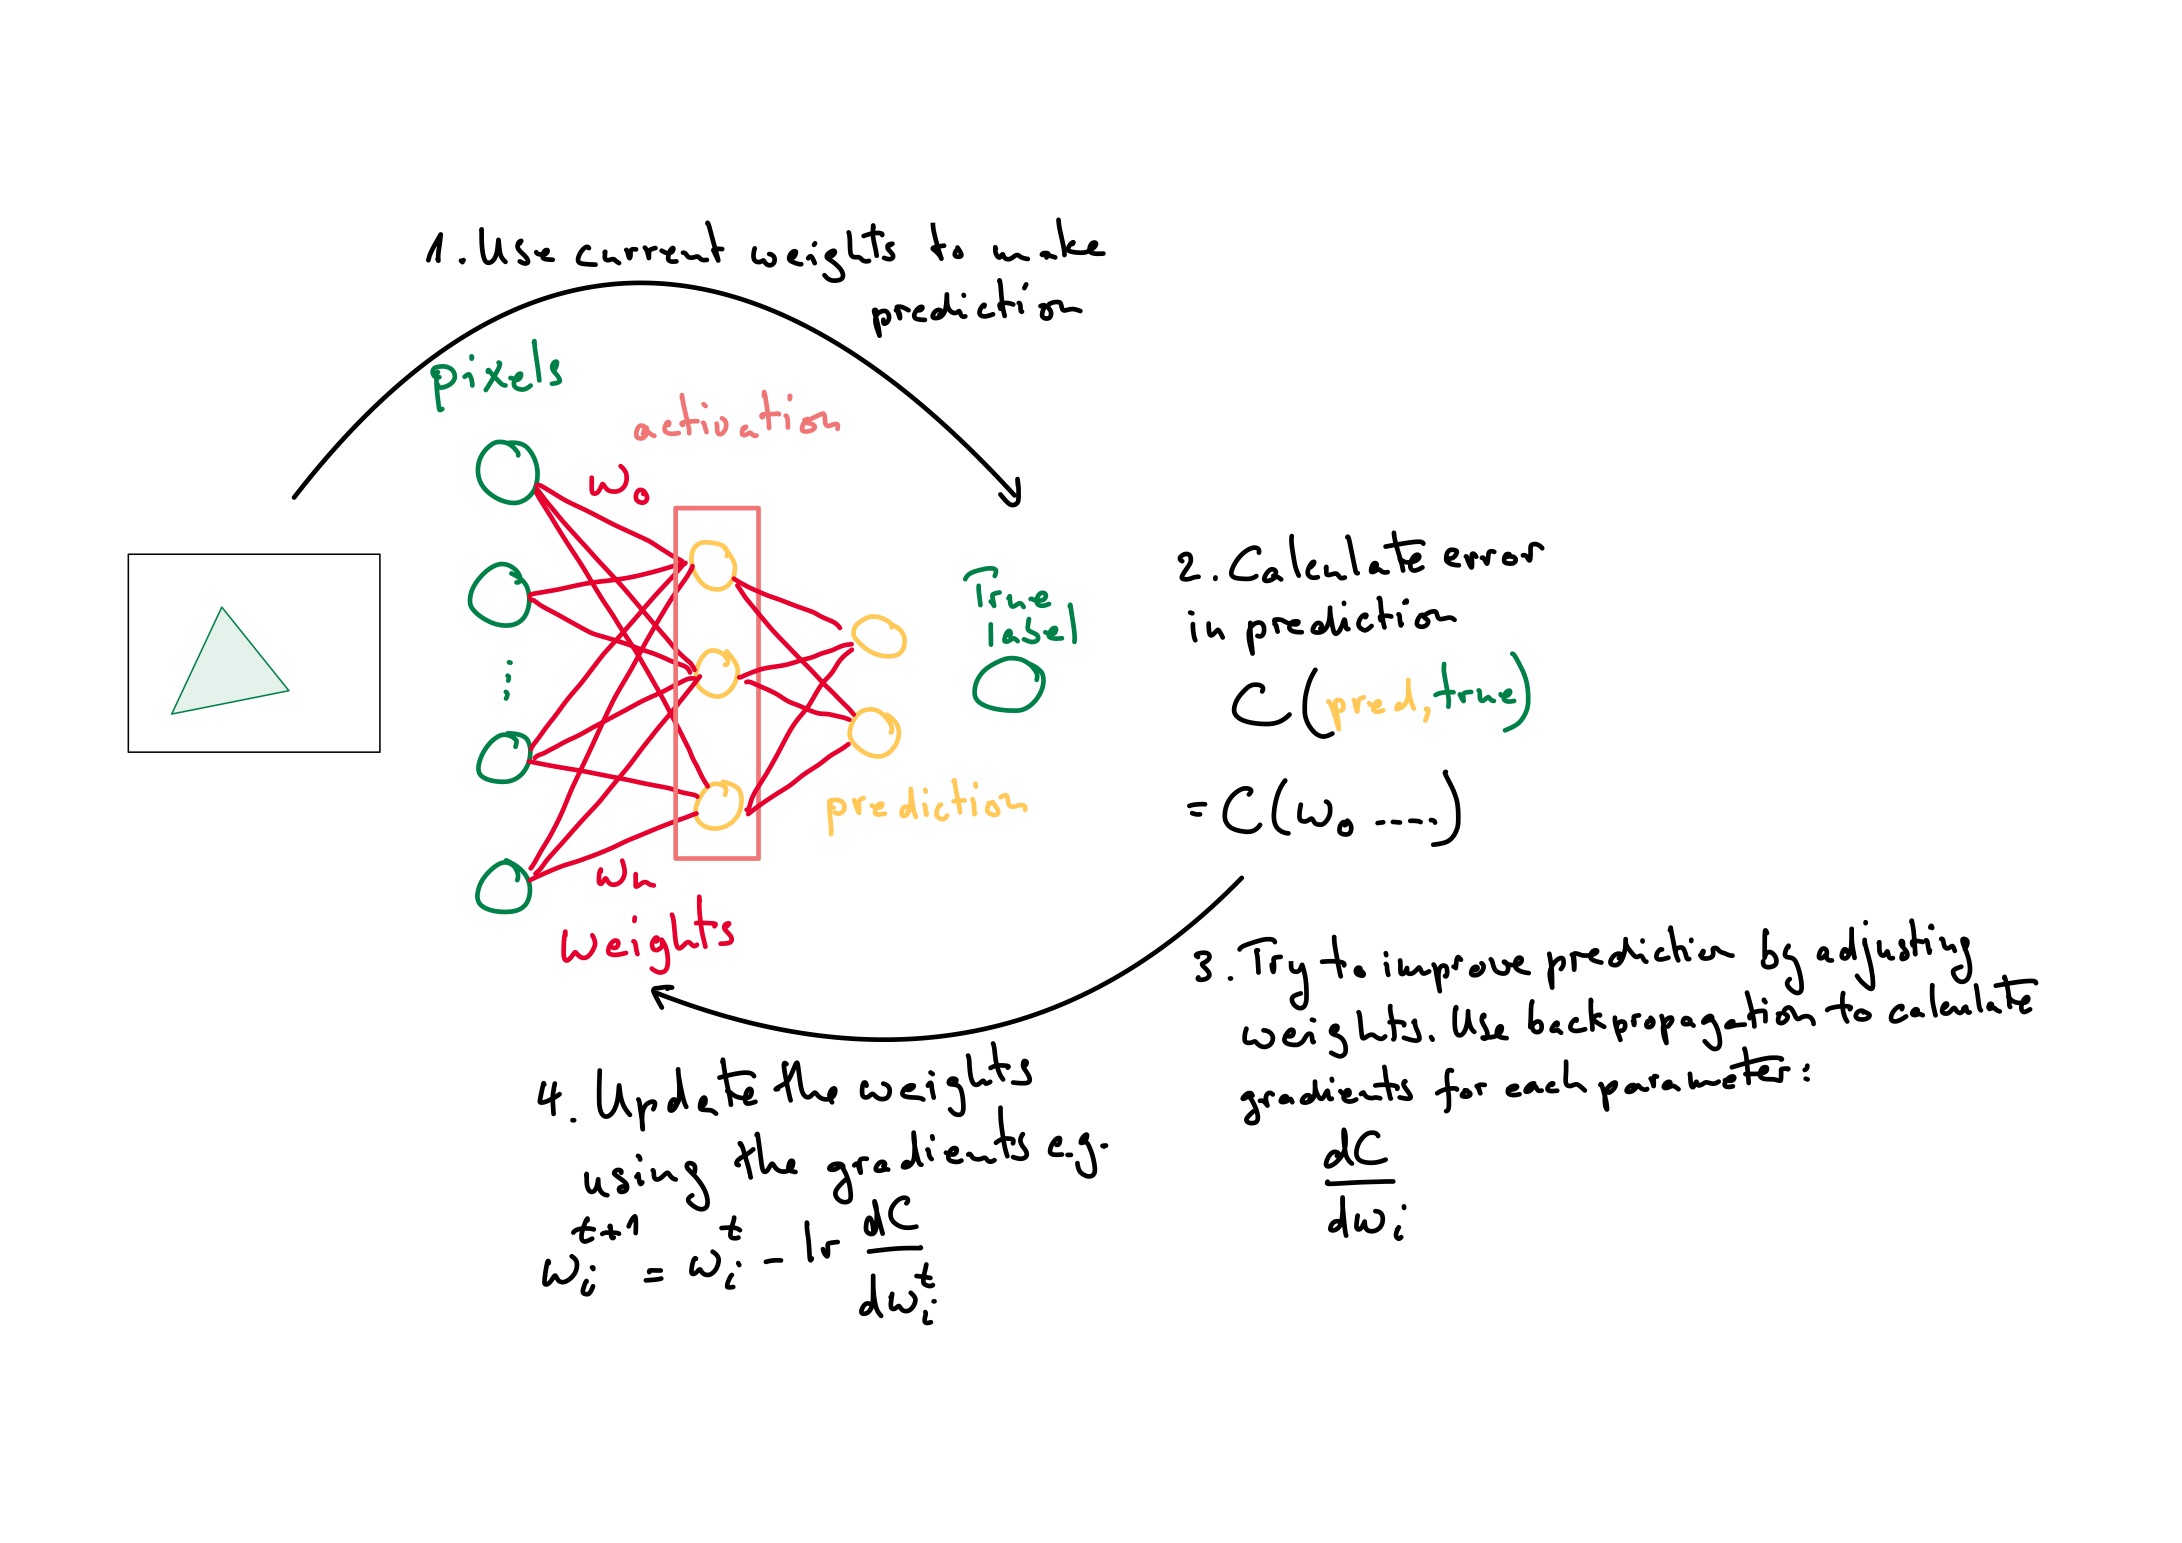 1. Use current weights to make
prediction
pixels
activation
w₀
True
label
prediction
wₙ
Weights
2. Calculate error
in prediction
C(pred, true)
= C(w₀ ....)
3. Try to improve prediction by adjusting
weights. Use backpropagation to calculate
gradients for each parameter:
dC
dwᵢ
4. Update the weights
using the gradients e.g.
wᵢᵗ⁺¹ = wᵢᵗ - lr dC
dwᵢᵗ